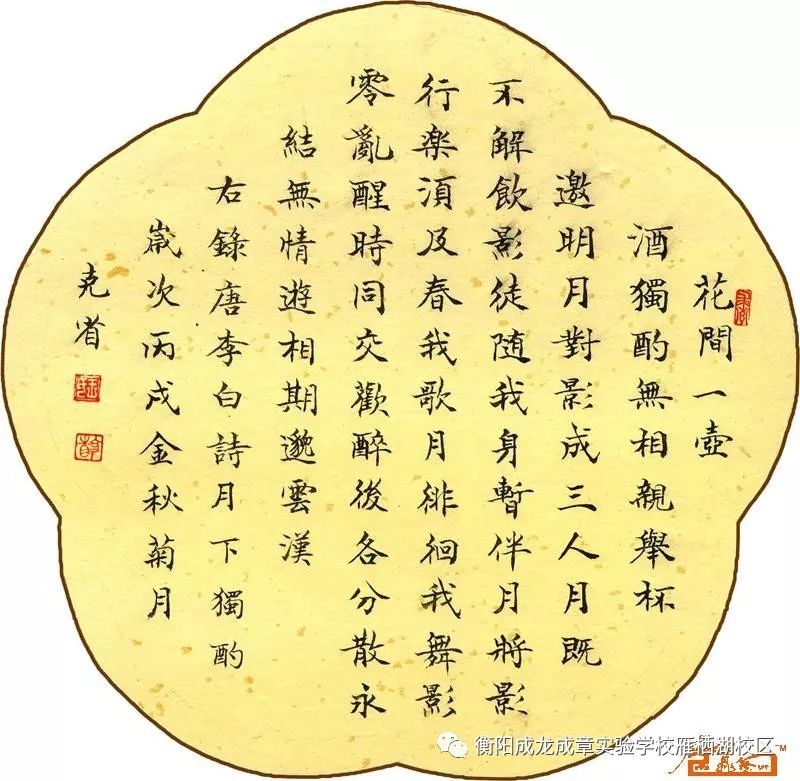 花間一壺
酒獨酌無相親舉杯
邀明月對影成三人月既
不解飲影徒随我身暫伴月將影
行楽湏及春我歌月徘徊我舞影
零亂醒時同交歡醉後各分散永
結無情遊相期邈雲漢
右錄唐李白詩月下獨酌
嵗次丙戌金秋菊月
克省
衡阳成龙成章实验学校雁栖湖校区